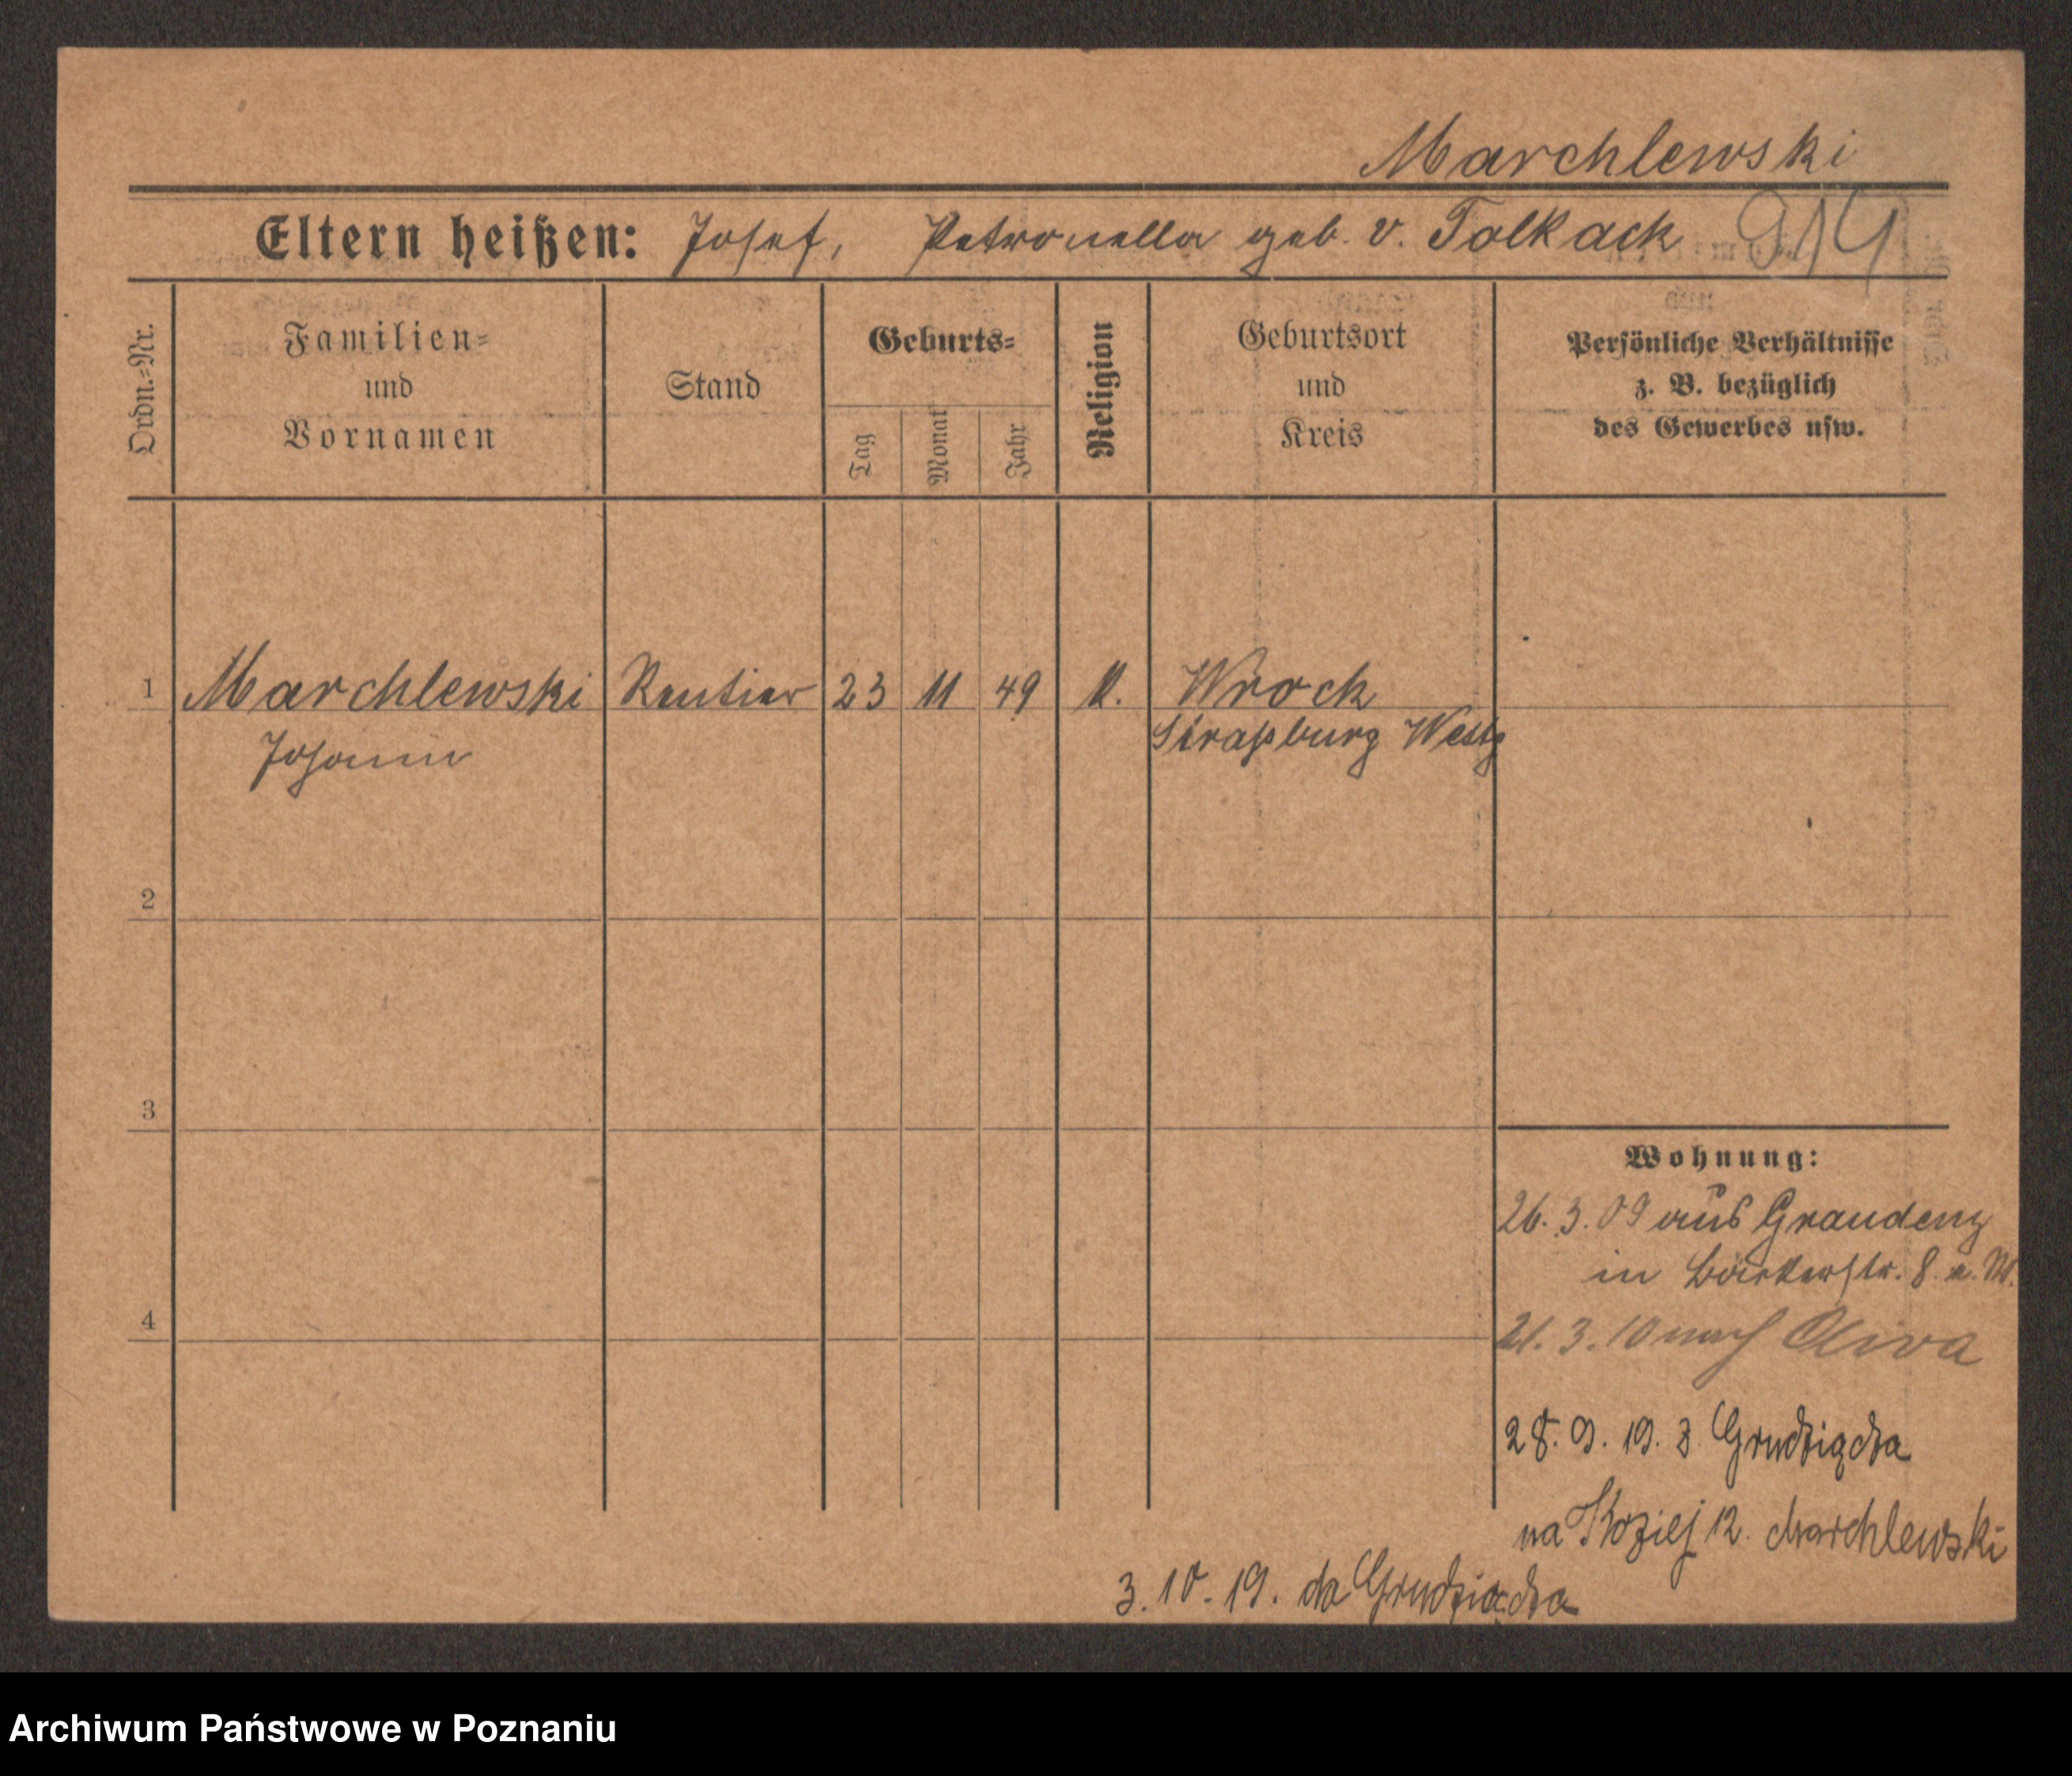 Marchlewski
Eltern heißen: Josef, Petronella geb. v. Tolkack 914
Ordn.-Nr.
Familien-
und
Vornamen
Stand
Geburts-
Tag
Monat
Jahr
Religion
Geburtsort
und
Kreis
Persönliche Verhältnisse
z. B. bezüglich
des Gewerbes usw.
1 Marchlewski Rentier 23 11 49 K. Wrock
Johann Straßburg Westp
2
3
4
Wohnung:
26. 3. 09 aus Graudenz
in Bäckerstr. 8.
21. 3. 10 nach Oliva
28. 9. 19. z Grudziądza
na Koziej 12. Marchlewski
3. 10. 19. do Grudziądza
Archiwum Państwowe w Poznaniu